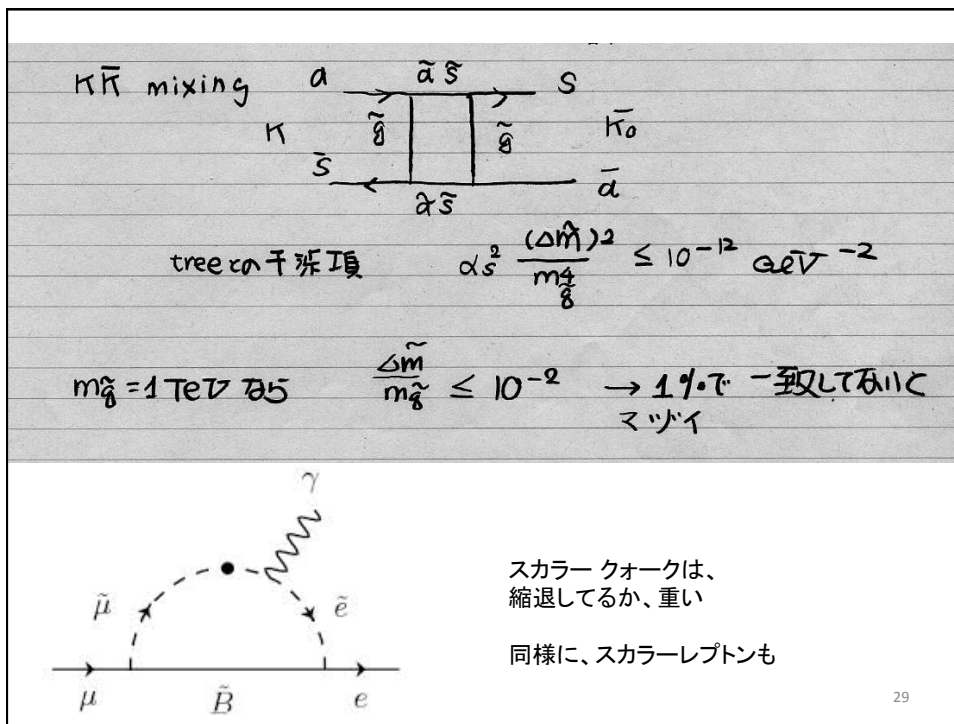 K K̄ mixing d d̃ s̃ s
K g̃ g̃ K̄₀
s̄ d̃ s̃ d̄
treeとの干渉項 αs² (Δm̃)² / m⁴g̃ ≤ 10⁻¹² GeV⁻²
mg̃ = 1 TeV なら Δm̃ / mg̃ ≤ 10⁻² → 1%で 一致してないと
マヅイ
γ
μ̃ ẽ
μ B̃ e
スカラー クォークは、
縮退してるか、重い
同様に、スカラーレプトンも
29